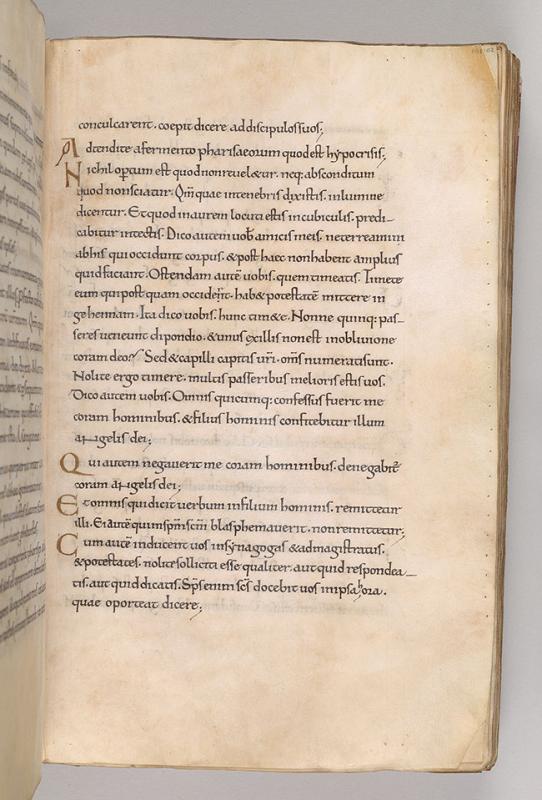 conculcarent. coepit dicere addiscipulossuos;
Adtendite afermento pharisaeorum quodest hypocrisis;
Nichil opertum est quodnonreueletur. neq; absconditum
quod nonsciatur. Qm̄ quae intenebris dixistis. inlumine
dicentur. Et quod inaurem locuti estis incubiculis. predi-
cabitur intectis. Dico autem uob̄ amicis meis. neterreamini
abhis qui occidunt corpus. & post haec nonhabent amplius
quidfaciant. Ostendam autē uobis. quem timeatis. Timete
eum qui post quam occiderit. hab& potestatē mittere in
gehennam. Ita dico uobis. hunc tim&e. Nonne quinq; pas-
seres ueneunt dipondio. & unus exillis nonest inobliuione
coram deo; Sed & capilli capitis ur̄i. om̄s numeratisunt.
Nolite ergo timere. multis passeribus meliores estis uos.
Dico autem uobis. Omnis quicumq; confessus fuerit me
coram hominibus. & filius hominis confitebitur illum
angelis dei;
Qui autem negauerit me coram hominibus. denegabit̄
coram angelis dei;
Et omnis qui dicit uerbum infilium hominis. remittetur
illi. Ei autē qui insp̄m sc̄m blasphemauerit. nonremittetur;
Cum autē inducent uos insynagogas & admagistratus.
& potestates. nolite solliciti esse qualiter. aut quid respondea-
tis. aut quid dicatis. Sp̄s enim sc̄s docebit uos inipsa hora.
quae oporteat dicere;